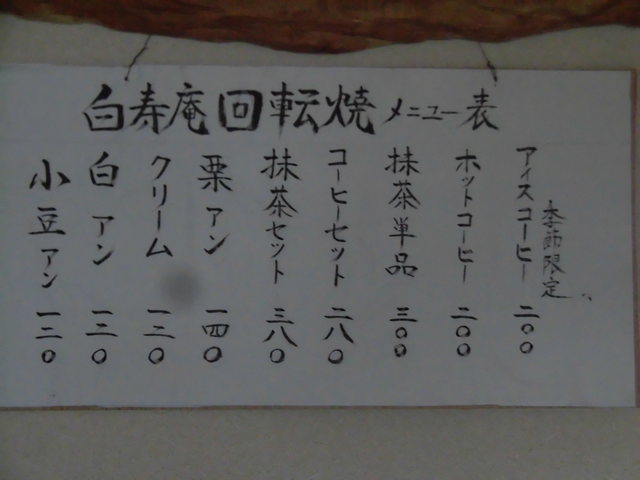 白寿庵回転焼メニュー表
季節限定
アイスコーヒー 二〇〇
ホットコーヒー 二〇〇
抹茶単品 三〇〇
コーヒーセット 二八〇
抹茶セット 三八〇
栗アン 一四〇
クリーム 一三〇
白アン 一三〇
小豆アン 一三〇